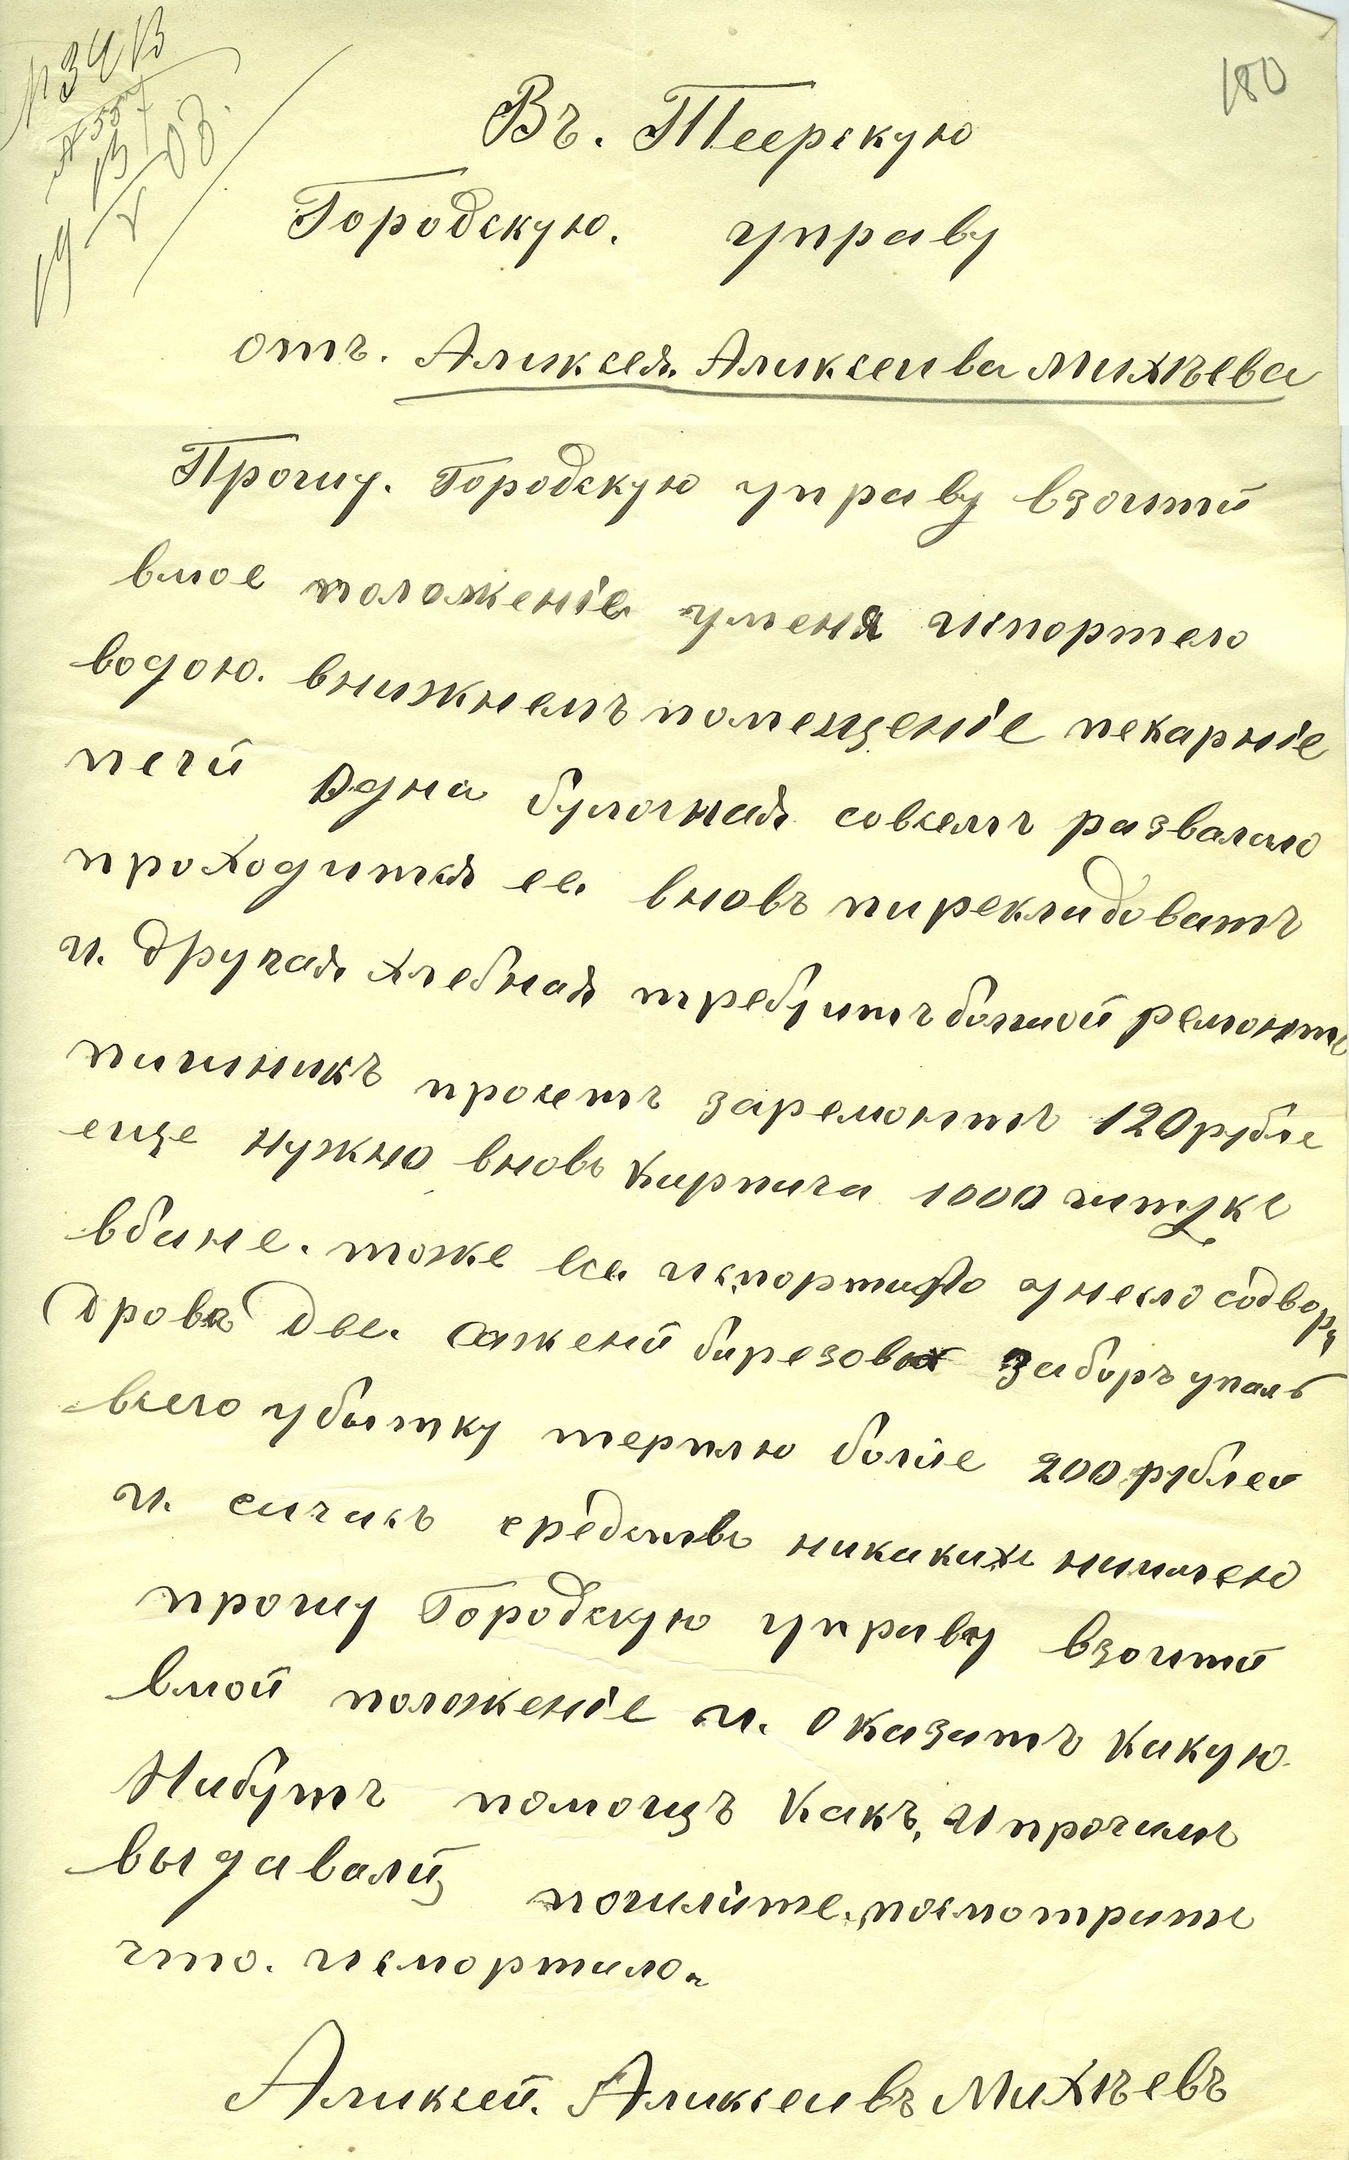 180
Въ. Тверскую
Городскую. управу
отъ. Аликсея. Аликсеива Михѣева
Прошу. Городскую управу взоити
вмое положеніе уменя испортело
водою. внижнемъ помещеніе пекарніе
печи одна булочная совсемъ развалило
проходится ее. вновъ пирекладоватъ
и. другая хлебная требуитъ болшой ремонтъ
пичникъ проситъ заремонтъ 120 рубле
еще нужно вновъ кирпича 1000 штукъ
вбане. тоже все испортило унесло содвора
дрова две. сажени бирезовых заборъ упалъ
всего убытку терплю более 200 рублей
и. сичасъ средствъ никакихъ ниимею
прошу Городскую управу взоити
вмой положеніе и. оказатъ какую.
Нибутъ помощъ какъ, и прочимъ
выдавали, пошлите. посмотрить
что. испортило.
Аликсей. Аликсеивъ Михѣевъ